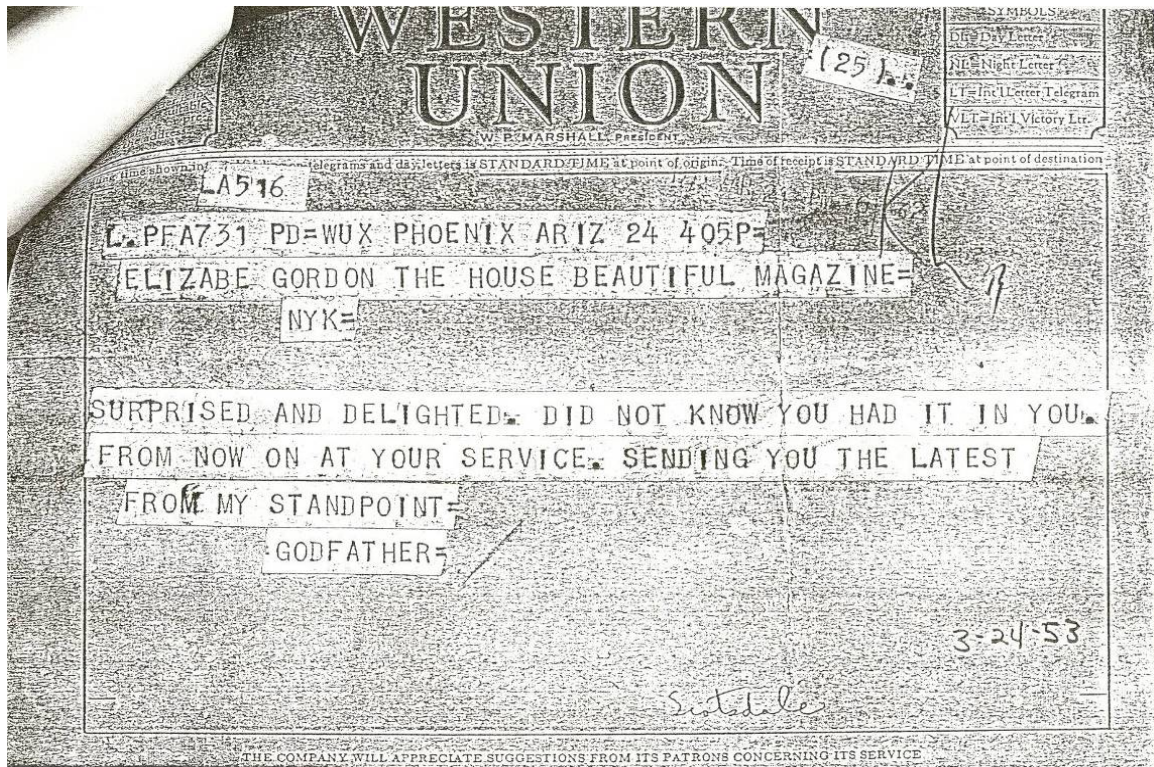 WESTERN
UNION
(25)..
W. P. MARSHALL, PRESIDENT
SYMBOLS
DL=Day Letter
NL=Night Letter
LT=Int'l Letter Telegram
VLT=Int'l Victory Ltr.
time shown in telegrams and day letters is STANDARD TIME at point of origin. Time of receipt is STANDARD TIME at point of destination
LA516
L.PFA731 PD=WUX PHOENIX ARIZ 24 405P=
ELIZABE GORDON THE HOUSE BEAUTIFUL MAGAZINE=
NYK=
SURPRISED AND DELIGHTED. DID NOT KNOW YOU HAD IT IN YOU.
FROM NOW ON AT YOUR SERVICE. SENDING YOU THE LATEST
FROM MY STANDPOINT=
GODFATHER=
3-24-53
Scotsdale
THE COMPANY WILL APPRECIATE SUGGESTIONS FROM ITS PATRONS CONCERNING ITS SERVICE